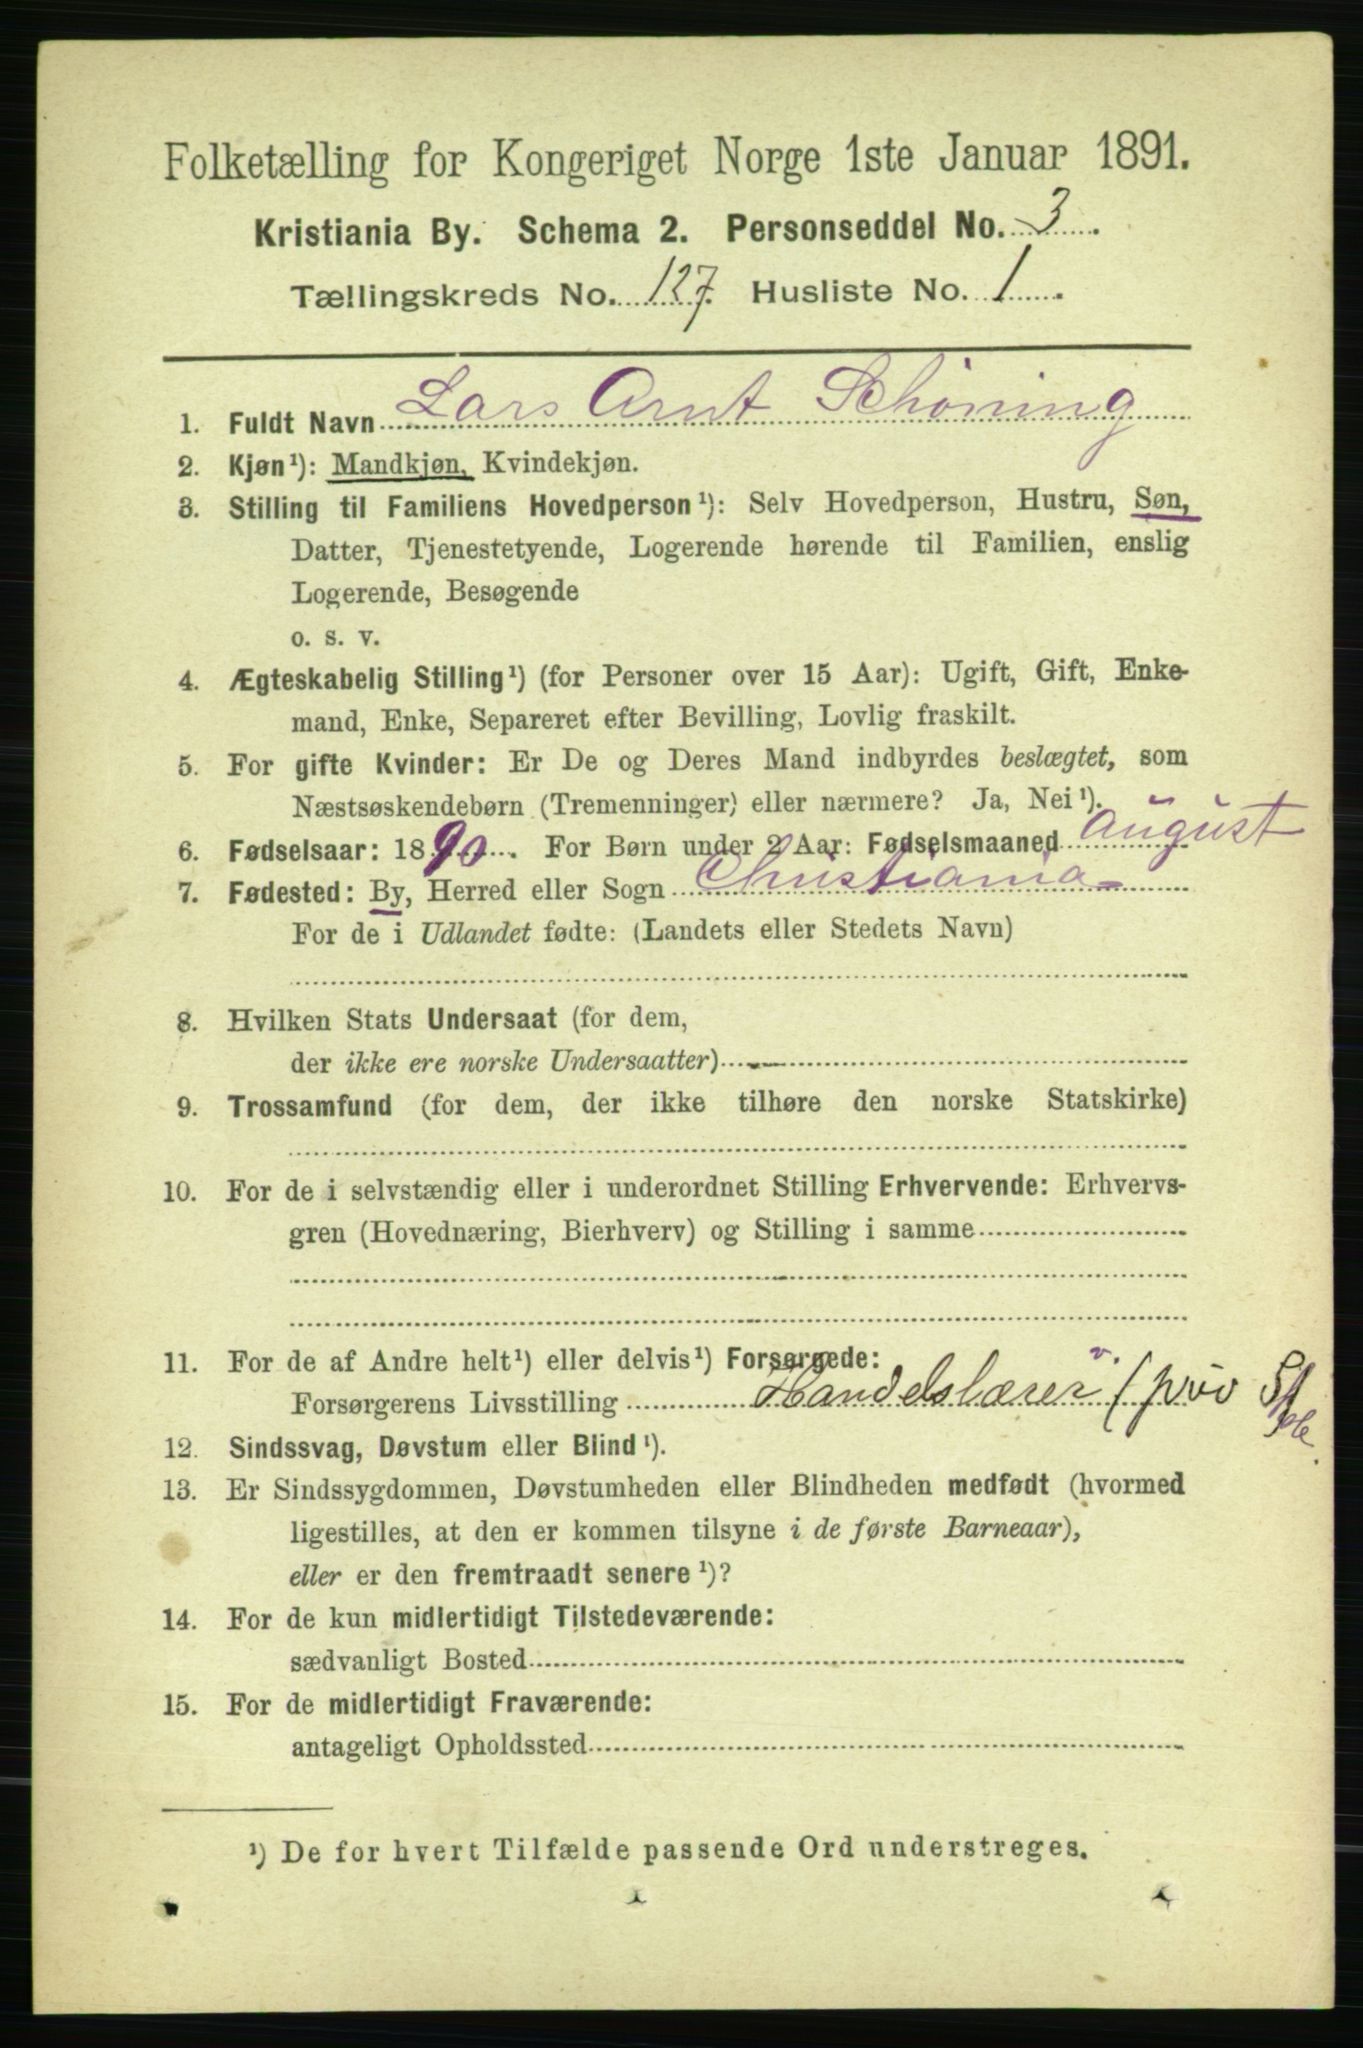 Folketælling for Kongeriget Norge 1ste Januar 1891.
Kristiania By. Schema 2. Personseddel No. 3.
Tællingskreds No. 127. Husliste No. 1.
1. Fuldt Navn Lars Arnt Schöning
2. Kjøn¹): Mandkjøn, Kvindekjøn.
3. Stilling til Familiens Hovedperson¹): Selv Hovedperson, Hustru, Søn,
Datter, Tjenestetyende, Logerende hørende til Familien, enslig
Logerende, Besøgende
o. s. v.
4. Ægteskabelig Stilling¹) (for Personer over 15 Aar): Ugift, Gift, Enke-
mand, Enke, Separeret efter Bevilling, Lovlig fraskilt.
5. For gifte Kvinder: Er De og Deres Mand indbyrdes beslægtet, som
Næstsøskendebørn (Tremenninger) eller nærmere? Ja, Nei¹).
6. Fødselsaar: 1890. For Børn under 2 Aar: Fødselsmaaned August
7. Fødested: By, Herred eller Sogn Christiania
For de i Udlandet fødte: (Landets eller Stedets Navn)
8. Hvilken Stats Undersaat (for dem,
der ikke ere norske Undersaatter)
9. Trossamfund (for dem, der ikke tilhøre den norske Statskirke)
10. For de i selvstændig eller i underordnet Stilling Erhvervende: Erhvervs-
gren (Hovednæring, Bierhverv) og Stilling i samme
11. For de af Andre helt¹) eller delvis¹) Forsørgede:
Forsørgerens Livsstilling Handelslærer v. (priv
12. Sindssvag, Døvstum eller Blind¹).
13. Er Sindssygdommen, Døvstumheden eller Blindheden medfødt (hvormed
ligestilles, at den er kommen tilsyne i de første Barneaar),
eller er den fremtraadt senere¹)?
14. For de kun midlertidigt Tilstedeværende:
sædvanligt Bosted
15. For de midlertidigt Fraværende:
antageligt Opholdssted
¹) De for hvert Tilfælde passende Ord understreges.